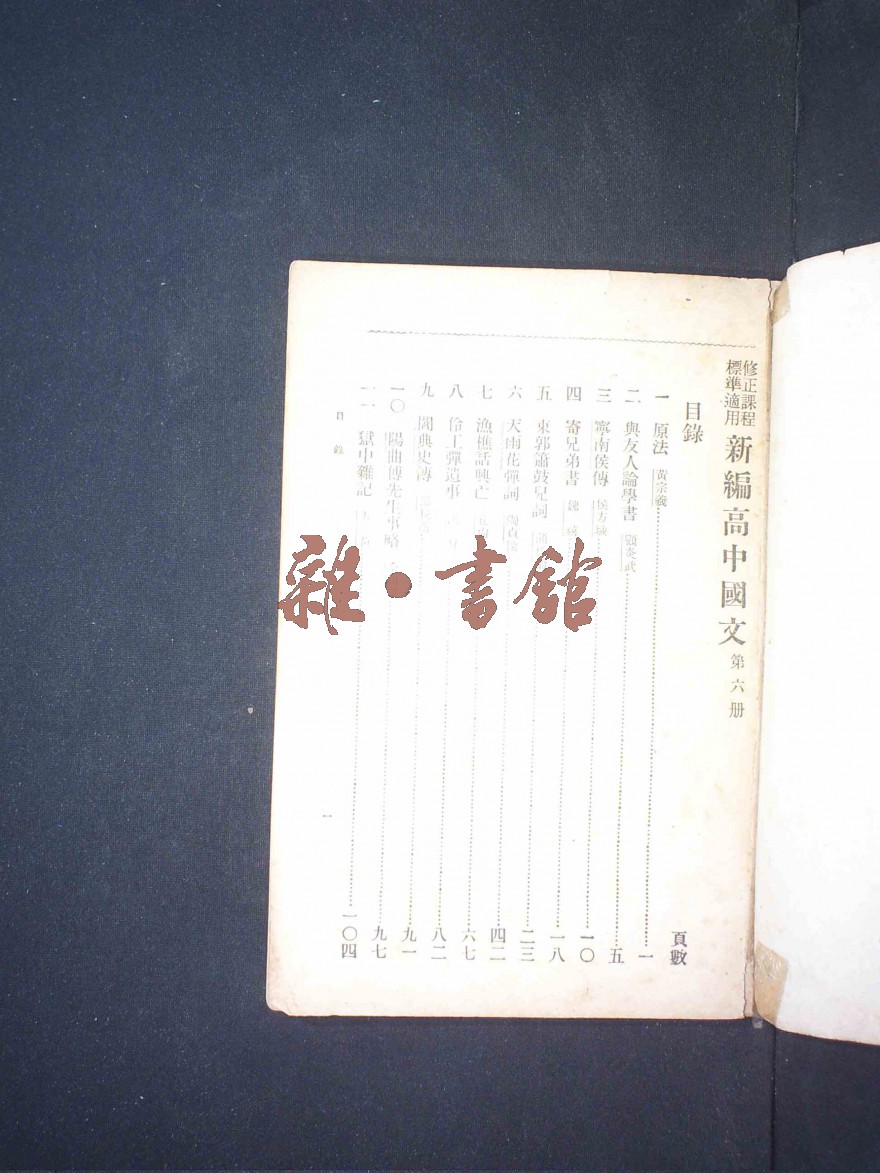 修正課程
標準適用
新編高中國文 第六册
目錄 頁數
一 原法 黃宗羲 一
二 與友人論學書 顧炎武 五
三 寧南侯傳 侯方域 一〇
四 寄兄弟書 魏 一八
五 東郭簫鼓兒詞 二三
六 天雨花彈詞 陶貞懷 四二
七 漁樵話興亡 六七
八 伶工彈遺事 八二
九 閻典史傳 九一
一〇 陽曲傅先生事略 九七
一一 獄中雜記 一〇四
目錄 一
雜·書館